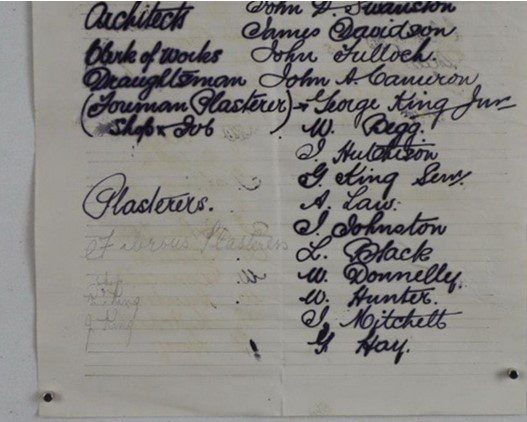 Architects John D. Swanston
James Davidson
Clerk of Works John Tulloch.
Draughtsman John A. Cameron
(Forman Plasterer) George King Jun.
Shop & Job ) W. Begg.
J. Hutchison
G. King Sen.
A. Law.
Plasterers. J. Johnston
Fibrous Plasterers L. Black
W. Donnelly.
W. Hunter.
J. Mitchell
G. Hay.